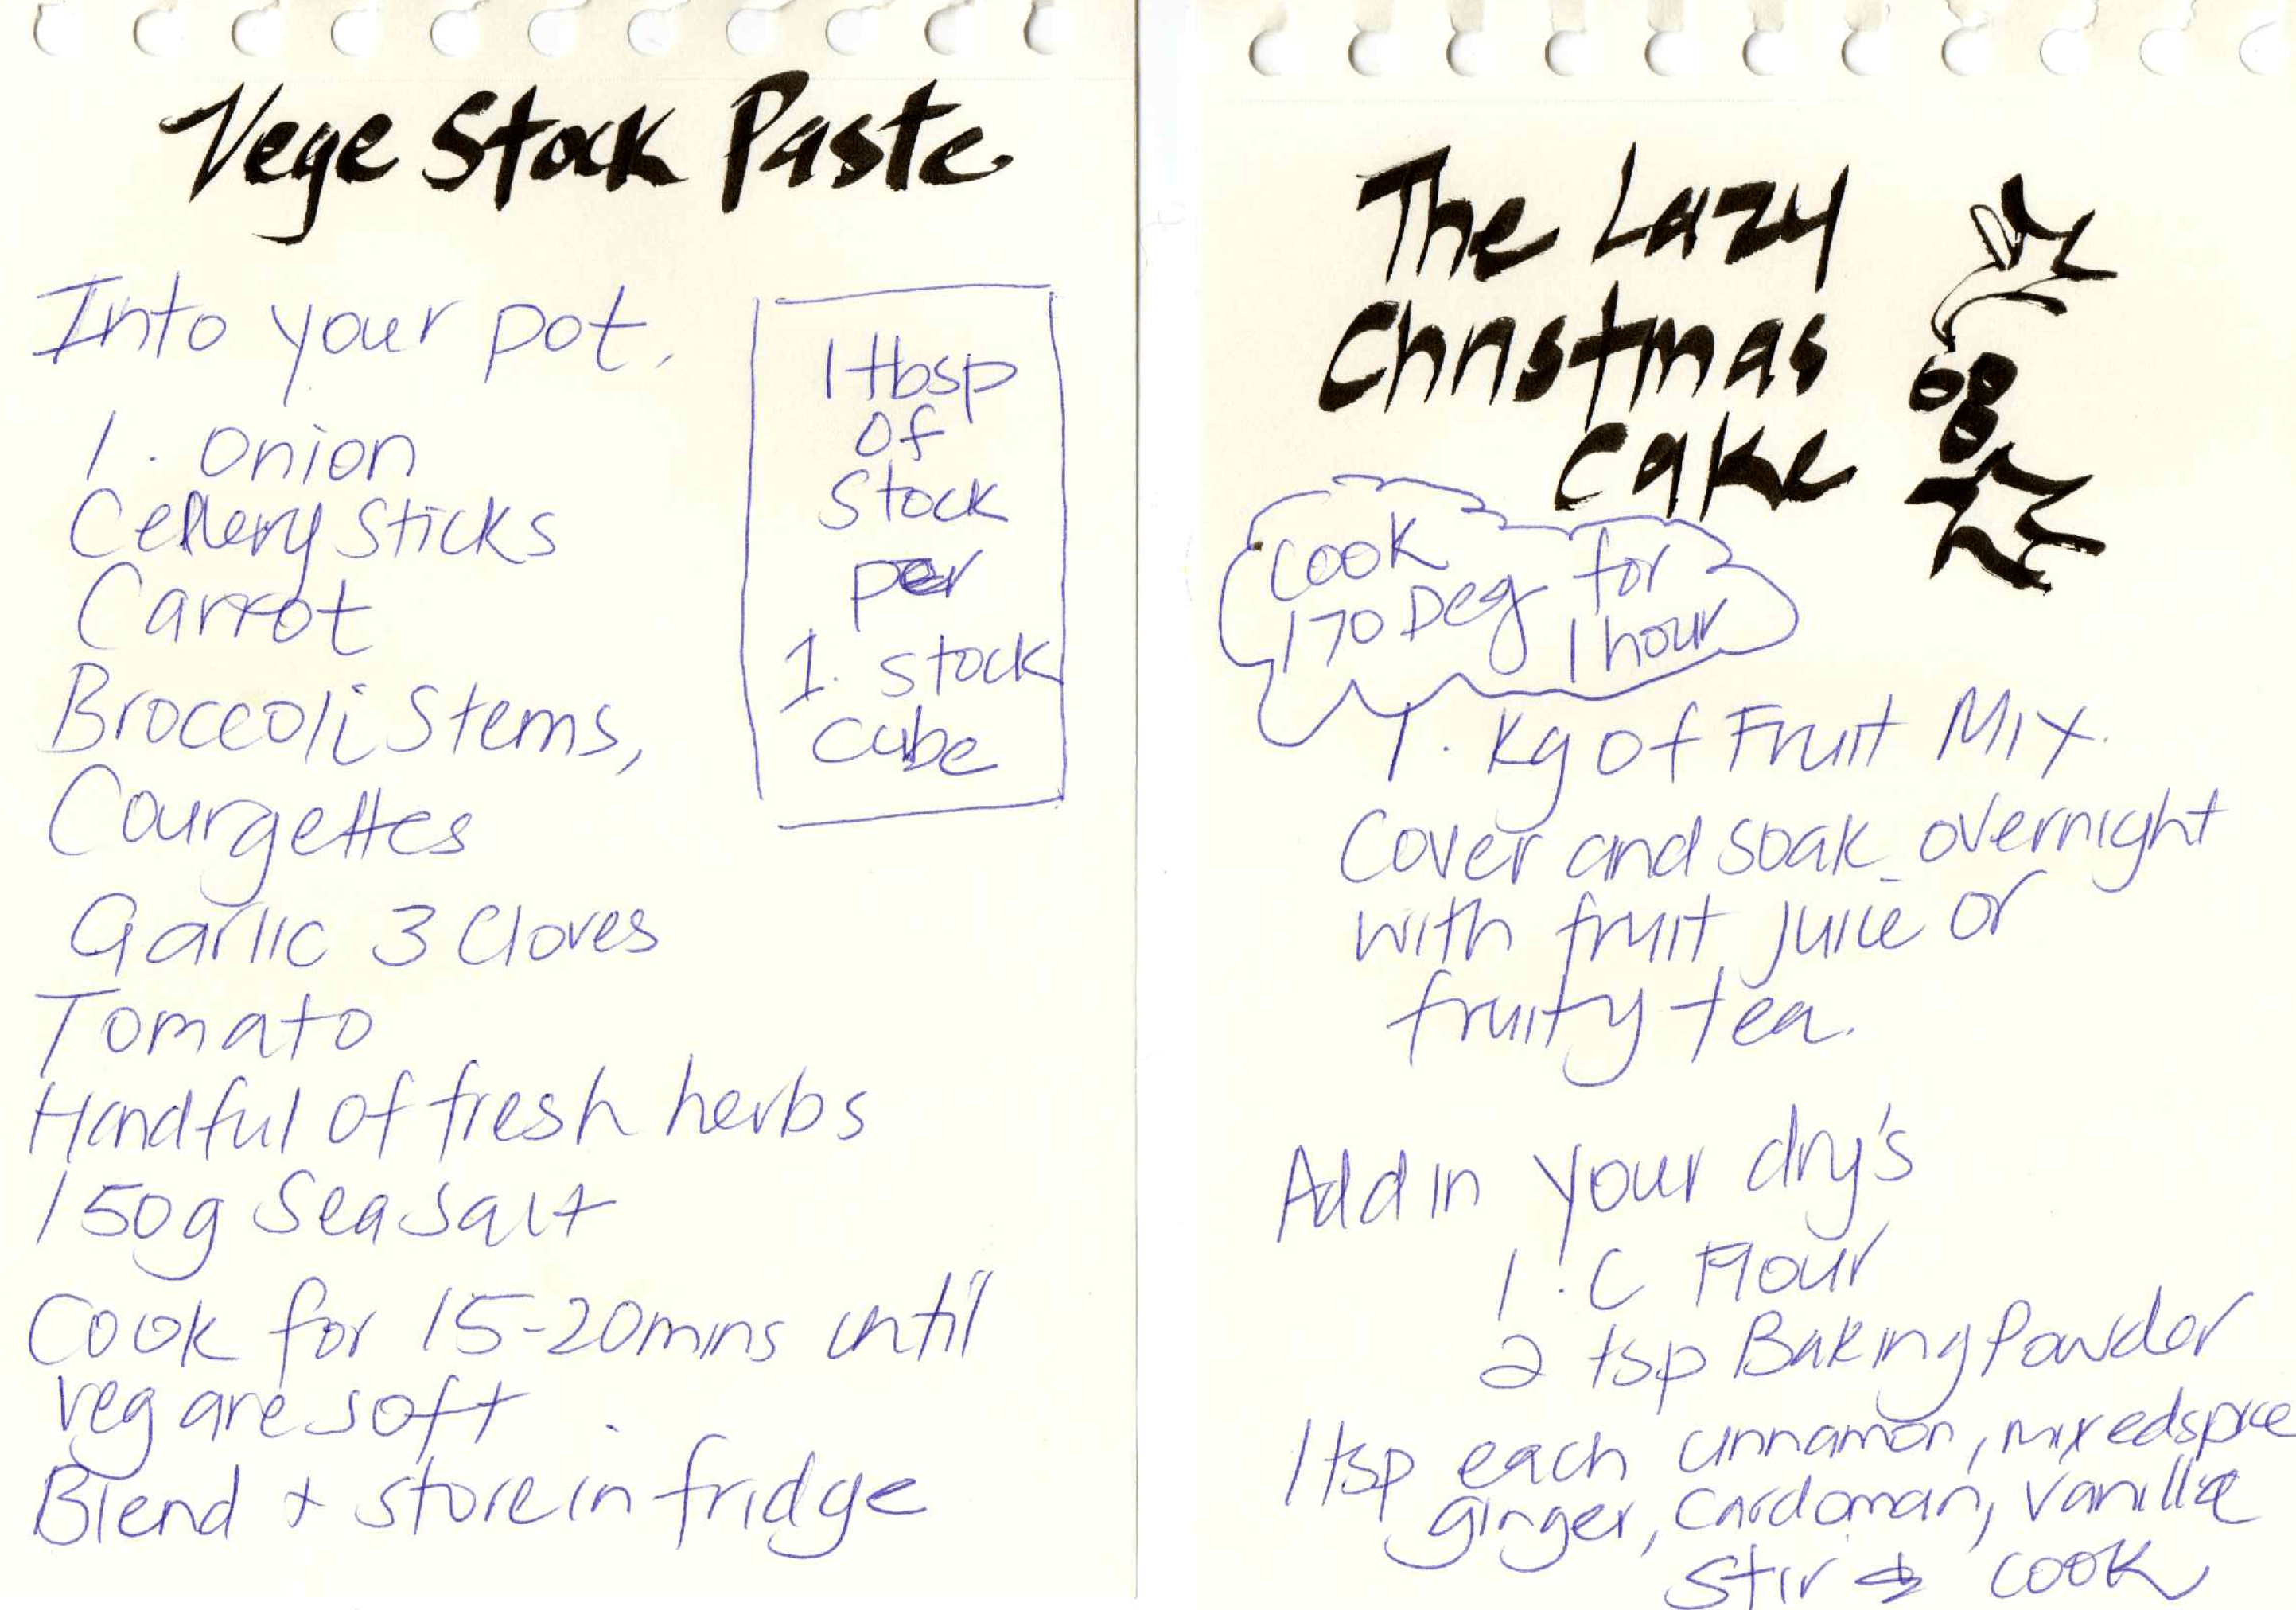 Vege Stock Paste
Into your pot,
1. Onion
Cellery Sticks
Carrot
Broccoli Stems,
Courgettes
Garlic 3 Cloves
Tomato
Handful of fresh herbs
150g Sea Salt
Cook for 15-20mins until
veg are soft
Blend + store in fridge
1 tbsp
of
Stock
per
1. stock
cube
The Lazy
Christmas
Cake
Cook
170 Deg for
1 hour
1. Kg of Fruit Mix.
Cover and soak overnight
with fruit juice or
fruity tea.
Add in your dry's
1. C Flour
2 tsp Baking Powder
1 tsp each cinnamon, mixed spice
ginger, Cardoman, Vanilla
Stir → Cook